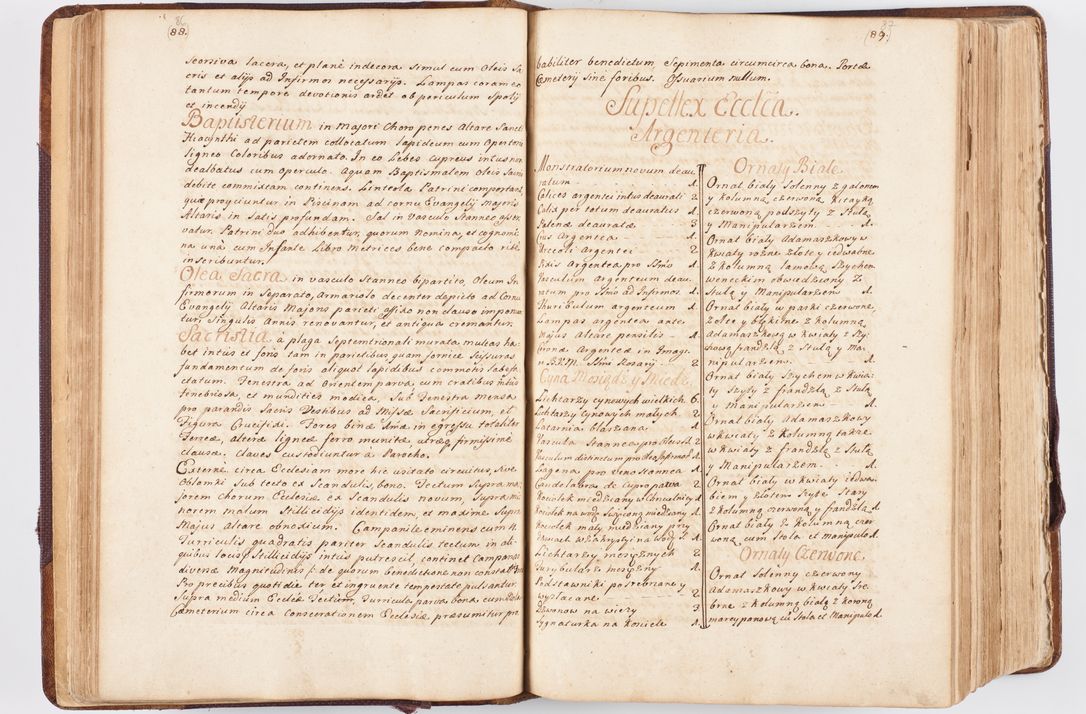 86
(88.
seorsiva lacera, et planè indecora simul cum Oleis Sa
cris et alijs ad Infirmos necessarijs. Lampas coram eo
tantum tempore devotionis ardet ob periculum Spolij
et incendij
Baptisterium in majori Choro penes Altare Sancti
Hiacynthi ad parietem collocatum lapideum cum Opertorio
ligneo Coloribus adornato. In eo Lebes cupreus intus non
dealbatus cum Operculo. Aquam Baptismalem Oleis Sacris
debite commixtam continens. Linteola Patrini comportant,
quæ projiciuntur in Piscinam ad cornu Evangelij Majoris
Altaris in Satis profundam. Sal in Vasculo Stanneo asser
vatur. Patrini Duo adhibentur, quorum Nomina, et cognomi
na una cum Infante Libro Metrices bene compacto ritè
inscribuntur.
Olea Sacra in vasculo Stanneo bipartito, Oleum In
firmorum in Separato, Armariolo decenter depicto ad Cornu
Evangelij Altaris Majoris parieti affixo non clauso imponun
tur, Singulis Annis renovantur, et antiqua cremantur.
Sacristia, a plaga Septemtrionali murata multas ha
bet intus et foris tam in parietibus quam fornice Scissuras
fundamentum de foris aliquot lapidibus commotis labefa
ctatum. Fenestra ad Orientem parva, cum cratibus intus
tenebrosa, et mundities modica, Sub Fenestra mensa
pro parandis Sacris Vestibus ad Missæ Sacrificium, et
Figura Crucifixi. Fores binæ Una in egressu totaliter
Ferreæ, altera ligneæ ferro munitæ, utræq firmissimè
clausæ. claves custodiuntur a Parocho.
Externè circa Ecclesiam more hic usitato circuitus, sive
Oblomki Sub tecto ex Scandulis, bono. Tectum Supra ma
jorem chorum Ecclesiæ ex Scandulis novum, Supra mi
norem malum Stillicidijs itidem, et maxime Supra
Majus Altare obnoxium. Campanile eminens cum 4.
Turriculis quadratis pariter Scandulis tectum in ali
quibus locis Stillicidijs intus putrescit, continet Campanas
diversæ Magnitudinis
Pro precibus quotidie ter et ingruente tempestate pulsantur.
Supra medium Eccleæ Tectum, Turricula parva bona cum
Cæmeterium circa consecrationem Ecclesiæ præsumitur pro
87
(89.
babiliter benedictum Sepimenta circumcirca bona. Portæ
Cæmeterij sine foribus. Ossuarium nullum.
Supellex Ecclca.
Argenteria.
Monstratorium novum deau
ratum 1.
Calices argentei intus deaurati 2
Calix per totum deauratus 1.
Patenæ deauratæ 3
Crux Argentea 1.
Urceoli Argentei 2
Pixis Argentea pro SSmo 1.
Vasculum Argenteum deau
ratum pro SSmo ad Infirmos 1.
Thuribulum argenteum 1.
Lampas argentea ante
Majus Altare pensilis 1.
Corona Argentea in Imagi
Cyna Mosiądz y Miedź.
Lichtarzy cynowych wielkich 6.
Lichtarzy cynowych małych 2
Latarnia blaszana 1.
Lagena pro Vino Stannea 1.
Candelabra de Cupro parva 2
Kociołek mały miedziany przy
Lichtarzy mosiężnych 2
Turybularz mosiężny 1.
Podstawniki posrebrzane y
wyzłacane 2
Dzwonow na wieży 3
Sygnaturka na Kosciele 1.
Ornaty Białe
Ornat biały Solenny z galonem
y kolumną czerwoną kitayką
czerwoną podszyty z Stułą
y Manipularzem 1.
Ornat biały Adamaszkowy w
kwiaty rożne złote y iedwabne
z kolumną lamową Szychem
weneckim obwiedziony z
Stułą y Manipularzem 1.
Ornat biały w paski czerwone,
żołte y błękitne z kolumną
Adamaszkową w kwiaty z Szy
chową frandzlą z Stułą y Ma-
nipularzem 1.
Ornat biały Szychem w kwia-
ty Szyty z frandzlą z Stułą
y Manipularzem 1.
Ornat biały Adamaszkowy
w kwiaty z Kolumną także
w kwiaty z frandzlą z Stułą
y Manipularzem 1.
Ornat biały w kwiaty iedwa-
biem y złotem Szyte Stary
z kolumną czerwoną y frandzlą 1
Ornat biały z kolumną czer
woną cum Stola et Manipulo 1
Ornaty Czerwone.
Ornat Solenny czerwony
Adamaszkowy w kwiaty Sre
brne z kolumną białą z koroną
marcypanową cū Stola et Manipulo 1.